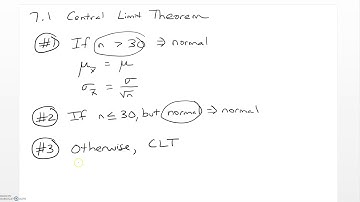 7.1 Central Limit Theorem
#1 If n > 30 ⇒ normal
μx̄ = μ
σx̄ = σ/√n
#2 If n ≤ 30, but normal ⇒ normal
#3 Otherwise, CLT